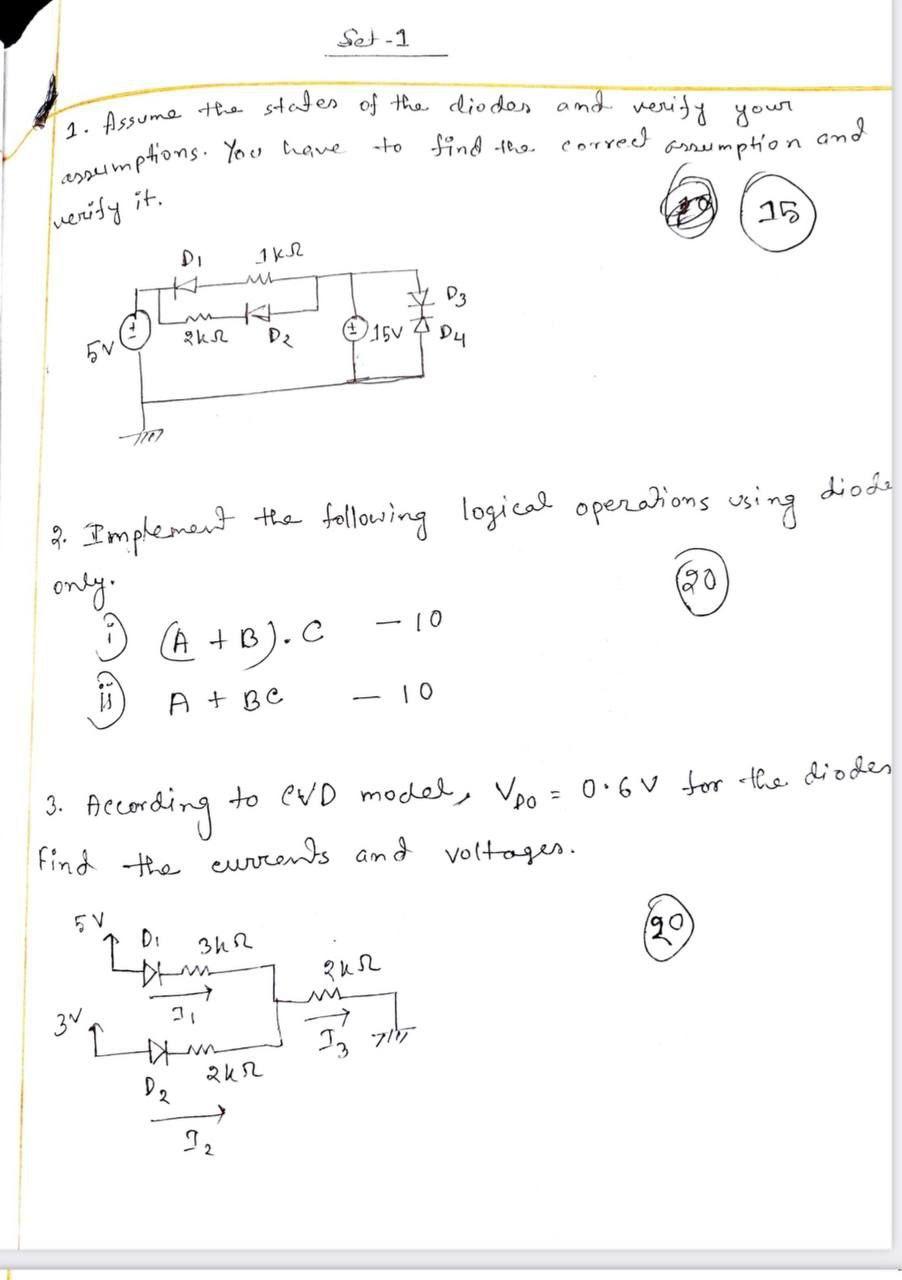 Set-1
1. Assume the states of the diodes and verify your
assumptions. You have to find the correct assumption and
verify it.
15
D1 1kΩ
D3
2kΩ D2
15V D4
5V
2. Implement the following logical operations using diode
only.
20
i) (A + B). C - 10
ii) A + BC - 10
3. According to CVD model, VD0 = 0.6V for the diodes
Find the currents and voltages.
20
5V
D1 3kΩ
2kΩ
I1
3V
I3
D2 2kΩ
I2